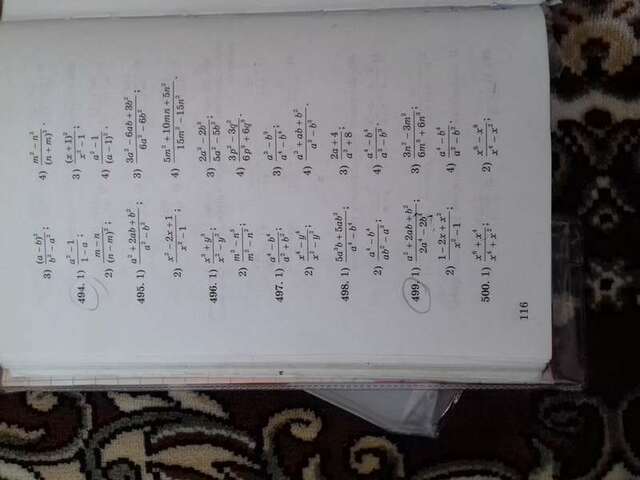 3) (a − b)² / (b² − a²); 4) (m² − n²) / (n + m)².
494. 1) (a² − 1) / (1 − a); 3) (x + 1)² / (x² − 1);
2) (m − n) / (n − m)²; 4) (a² − 1) / (a − 1)².
495. 1) (a² + 2ab + b²) / (a² − b²); 3) (3a² − 6ab + 3b²) / (6a² − 6b²);
2) (x² − 2x + 1) / (x² − 1); 4) (5m² + 10mn + 5n²) / (15m² − 15n²).
496. 1) (x³ + y³) / (x² − y²); 3) (2a³ − 2b³) / (5a² − 5b²);
2) (m³ − n³) / (m² − n²); 4) (3p² − 3q²) / (6p³ + 6q³).
497. 1) (a⁴ − b⁴) / (a² + b²); 3) (a³ − b³) / (a⁴ − b⁴);
2) (x⁴ − y⁴) / (x² − y²); 4) (a² + ab + b²) / (a³ − b³).
498. 1) (5a³b + 5ab³) / (a⁴ − b⁴); 3) (2a + 4) / (a³ + 8);
2) (a⁴ − b⁴) / (ab² − a³); 4) (a⁴ − b⁴) / (a³ − b³).
499. 1) (a² + 2ab + b²) / (2a⁴ − 2b⁴); 3) (3n² − 3m²) / (6m³ + 6n³);
2) (1 − 2x + x²) / (x² − 1); 4) (a⁴ − b⁴) / (a² − b²).
500. 1) (x⁶ + x⁴) / (x⁴ + x²); 2) (x⁶ − x⁸) / (x⁴ − x²);
116